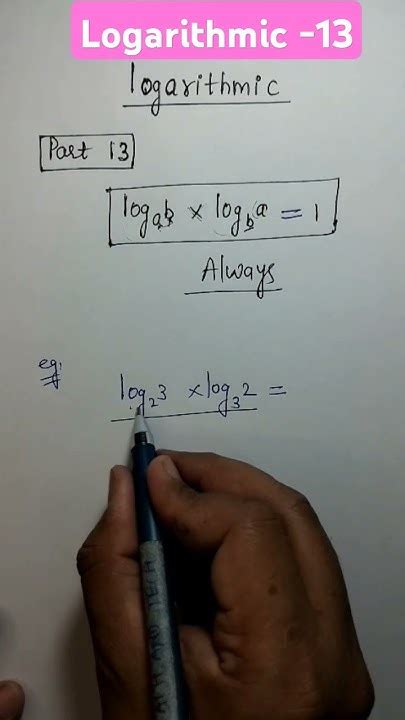 Logarithmic -13
logarithmic
Part 13
logₐb × log_b a = 1
Always
eg:
log₂3 × log₃2 =